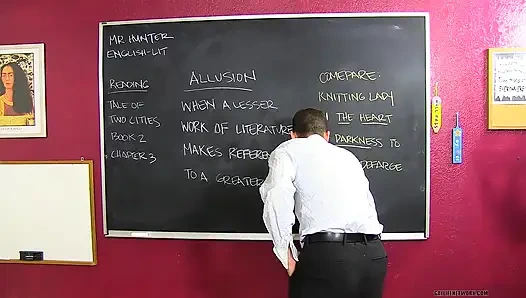 MR HUNTER
ENGLISH-LIT
READING
TALE OF
TWO CITIES
BOOK 2
CHAPTER 3
ALLUSION
WHEN A LESSER
WORK OF LITERATURE
MAKES REFERE
TO A GREATE
COMEPARE.
KNITTING LADY
THE HEART
DARKNESS TO
DEFARGE